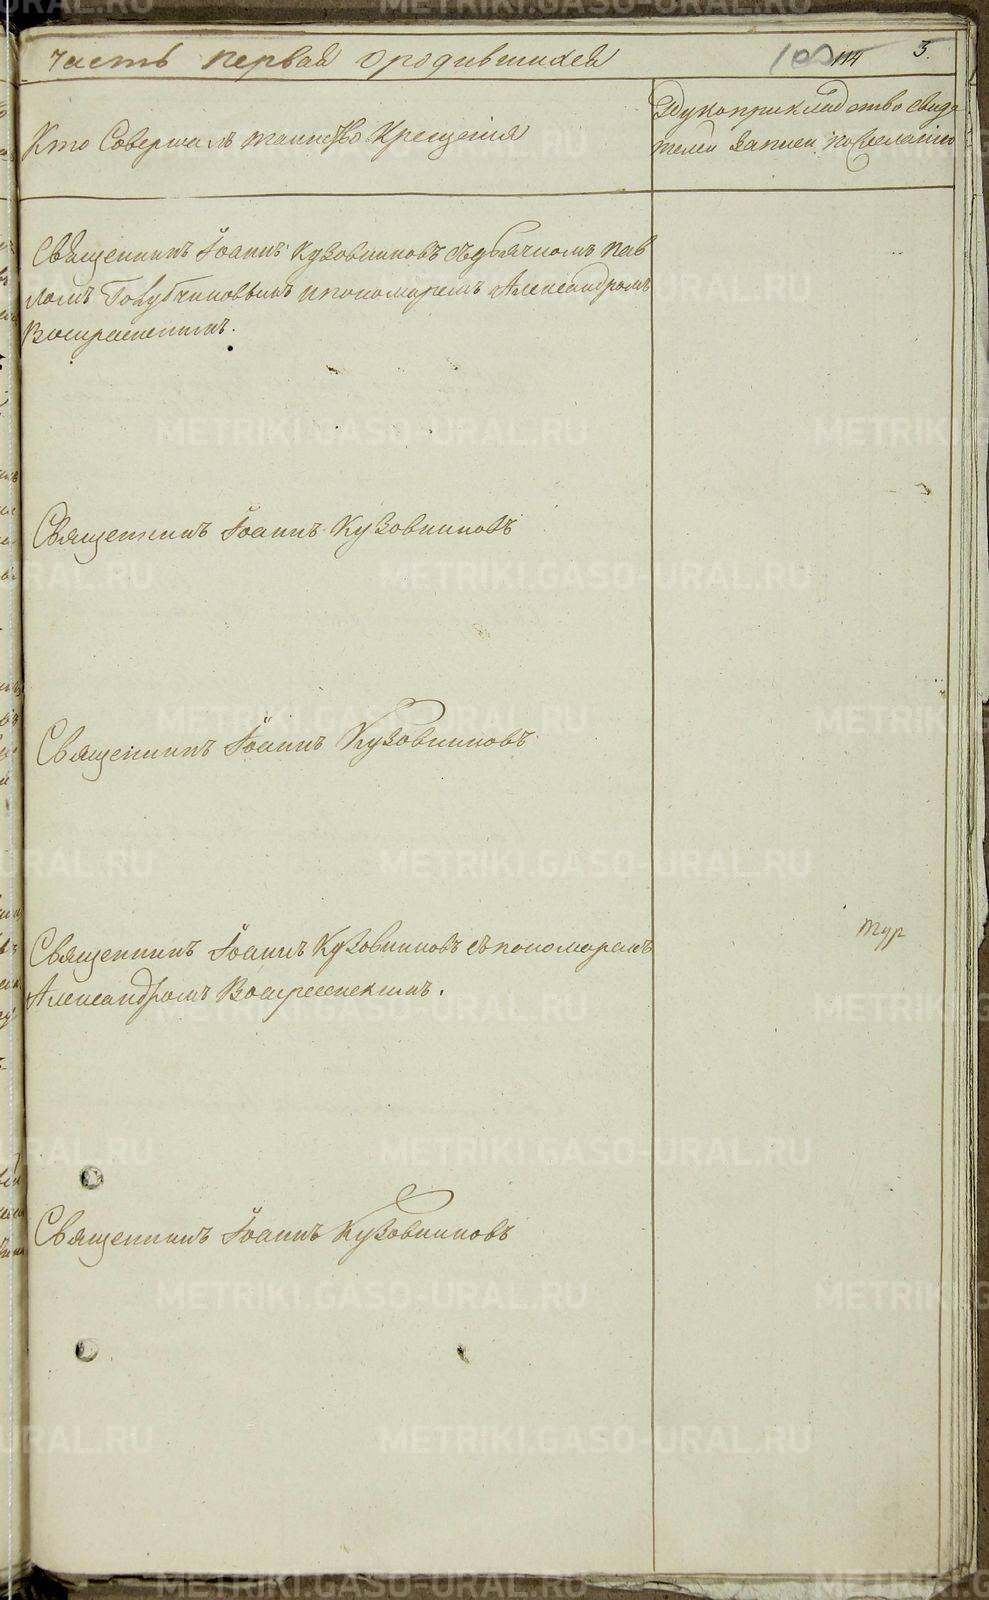 часть первая о родившихся
100 114 5.
Кто Совершалъ таинство Крещенiя
Рукоприкладство свидѣ
телей записи по желанiю
Священникъ Iоаннъ Кузовниковъ съ дьячкомъ Пав
ломъ Голубчиковымъ и пономаремъ Александромъ
Воскресенскимъ.
Священникъ Iоаннъ Кузовниковъ
Священникъ Iоаннъ Кузовниковъ
тур
Священникъ Iоаннъ Кузовниковъ съ пономаремъ
Александромъ Воскресенскимъ.
Священникъ Iоаннъ Кузовниковъ
METRIKI.GASO-URAL.RU